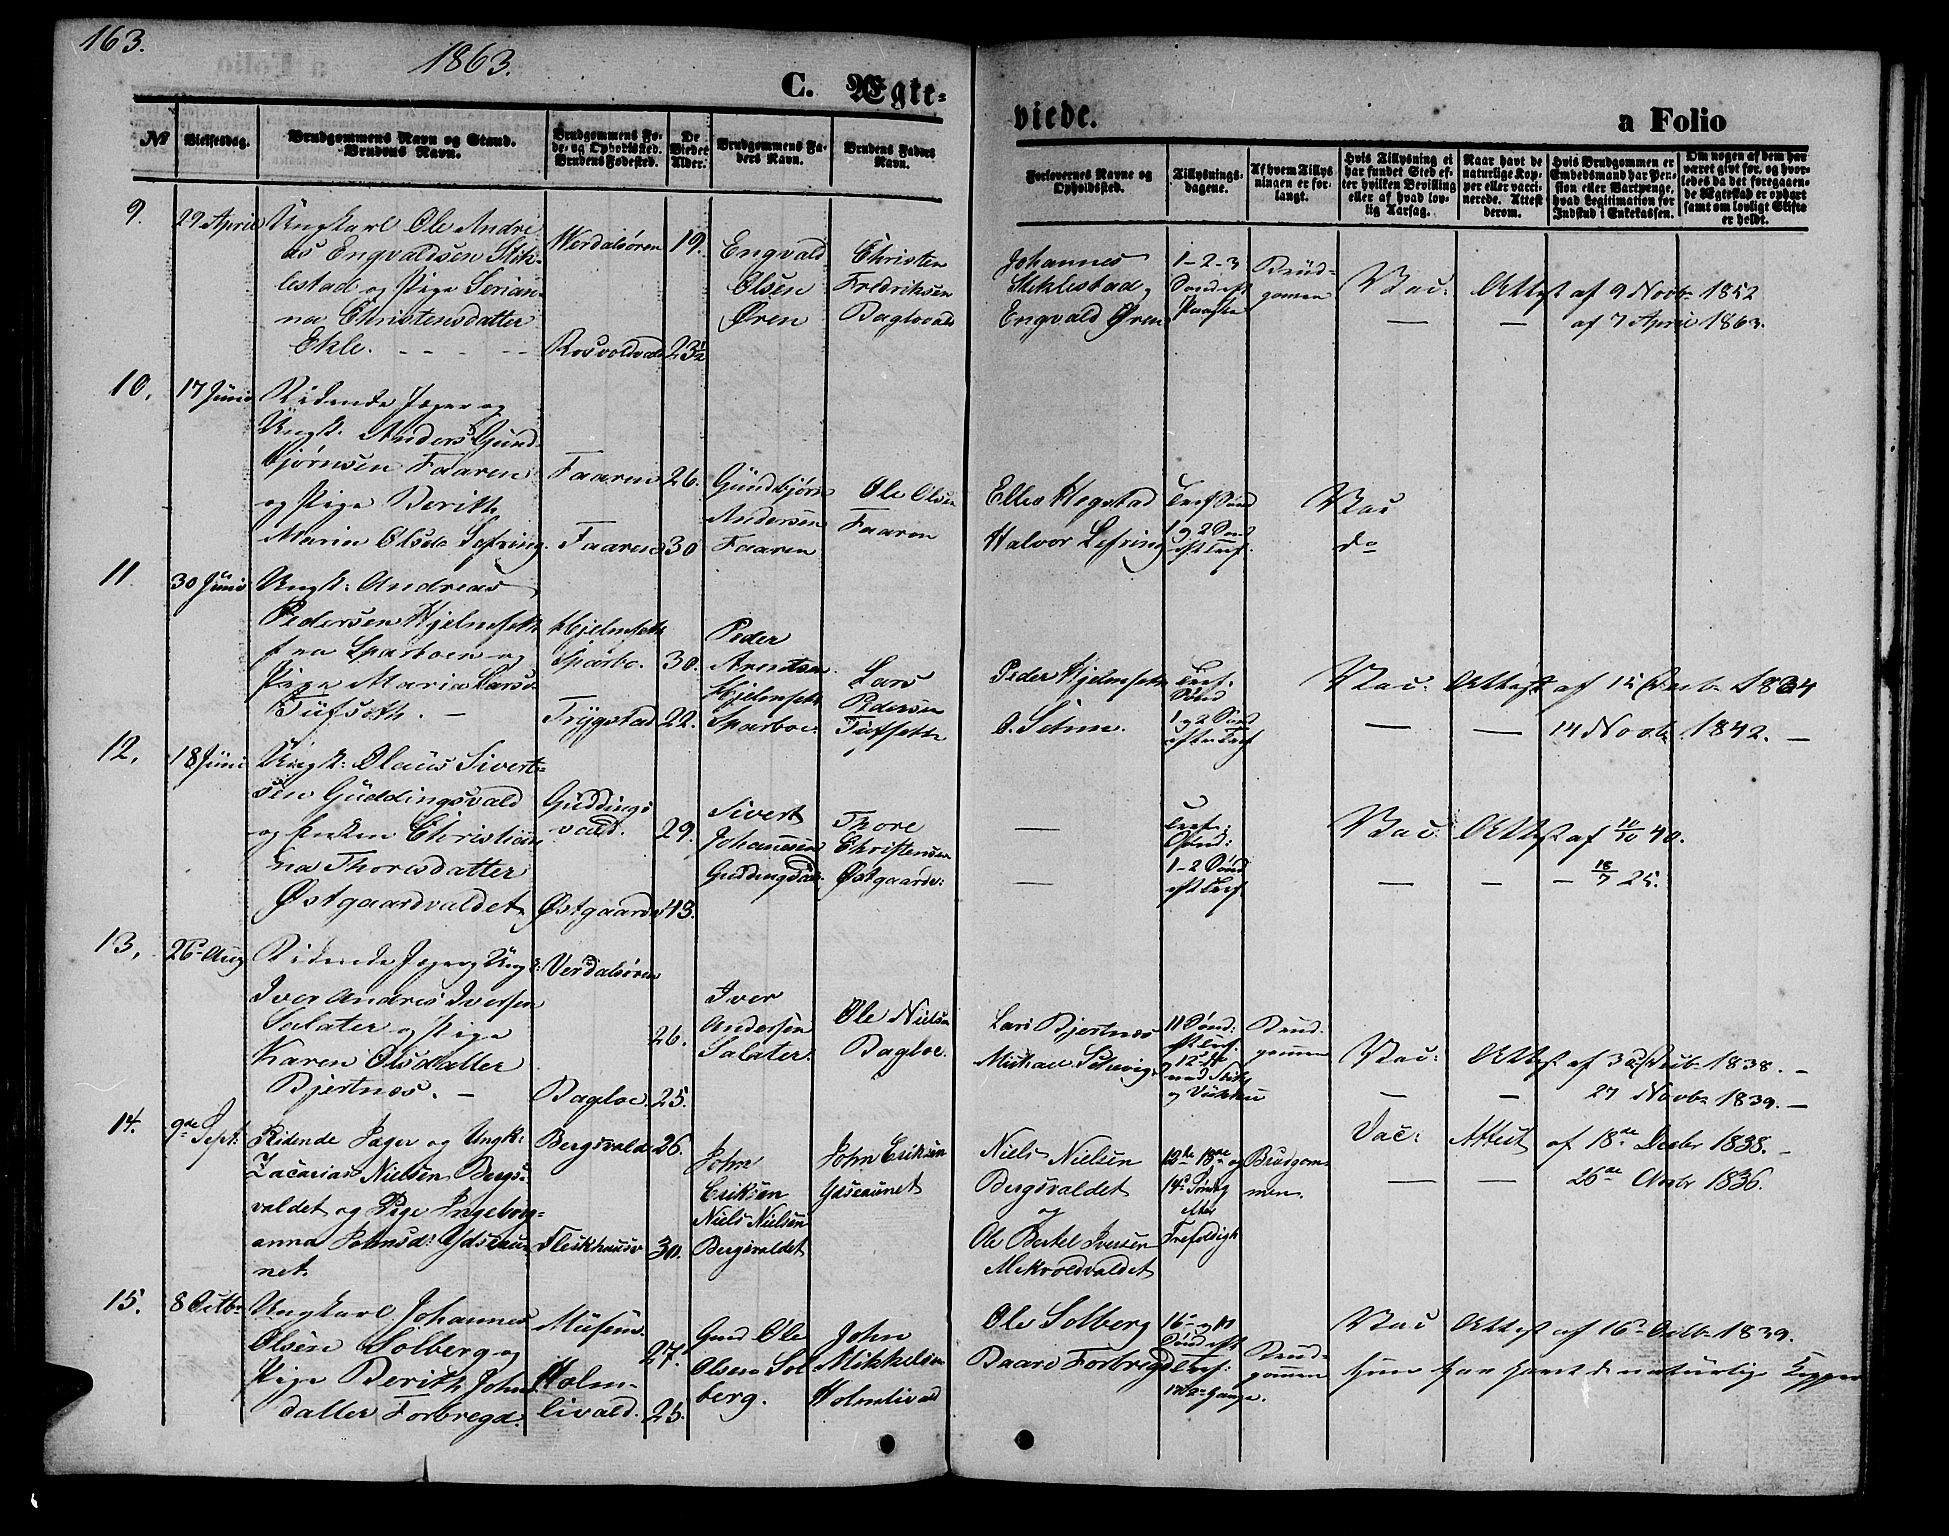 163.
1863.
C. Ægte-
viede.
a Folio
№
Vielsesdag.
Brudgommens Navn og Stand.
Brudens Navn.
Brudgommens Fø-
de- og Opholdsted.
Brudens Fødested.
De
Viedes
Alder.
Brudgommens Fa-
ders Navn.
Brudens Faders
Navn.
Forlovernes Navne og
Opholdsted.
Tillysnings-
dagene.
Af hvem Tillys
ningen er for-
langt.
Hvis Tillysning ei
har fundet Sted ef-
ter hvilken Bevilling
eller af hvad lov-
lig Aarsag.
Naar havt de
naturlige Kop-
per eller vacci-
nerede. Attest
derom.
Hvis Brudgommen er
Embedsmand har Pen-
sion eller Vartpenge,
hvad Legitimation for
Indskud i Enkekassen.
Om nogen af dem har
været gift før, og hvor-
ledes da det foregaaen-
de Ægteskab er ophørt
samt om lovligt Skifte
er holdt.
9.
29 April
Ungkarl Ole Andre
as Engvaldsen Stik-
lestad og Pige Serian-
na Christensdatter
Ekle.
Werdalsøren
Rosvoldvald
19.
23½
Engvald
Olsen
Øren
Christen
Fredriksen
Baglovald
Johannes
Stiklestad,
Engvald Øren
1-2-3
Sond eft
Paaske
Brud-
gomen
Vac:
Attest af 9 Novbr 1852
— — af 7 April 1863.
10.
17 Juni
Ridende Jæger og
Ungk: Anders Gund-
bjørnsen Faaren
og Pige Berith
Maria Olsdr Lefring.
Faaren
Faaren
26.
30
Gundbjørn
Andersen
Faaren
Ole Olsen
Faaren
Elles Hegstad
Halvor Lefring
Tref Sønd
1 og 2 Sønd
eft Tref.
Vac
do
11.
30 Juni
Ungk: Andreas
Pedersen Hjelmseth
fra Sparboen og
Pige Maria Larsd
Tufseth. —
Hjelmseth
Sparbo.
Trygstad
30.
22.
Peder
Arentsen
Hjelmseth
Sparboe.
Lars
Pedersen
Tufseth
Peder Hjelmseth
O. Setnn.
Tref.
Sønd
1 og 2 Sønd
efter Tref
Vac: Attest af 15 Decbr 1834
— — 14 Novbr 1842. —
12.
18 Juni
Ungk: Olaus Sivert-
sen Guddingsvald
og Enken Christian
na Thoresdatter
Østgaardvaldet
Guddings
vald.
Østgaards
29.
43.
Sivert
Johannesen
Guddingsvald.
Thore
Christensen
Østgaards.
—
—
Tref.
Sønd:
1-2 Sønd
eft Tref
Vac: Attest af 11/10 40.
— — — 18/7 25.
13.
26 Aug
Ridende Jæger og Ungk:
Iver Andreas Iversen
Salater og Pige
Karen Olsdatter
Bjertnes. —
Verdalsøren
Bagloe.
26.
25.
Iver
Andersen
Salater.
Ole Nielsen
Bagloe.
Lars Bjertnes
11 Sønd:
eft Tref.
og Vukku
Brud-
gommen
Vac: Attest af 30 Decbr 1838. —
— — 27 Novbr 1839. —
14.
9de Sept.
Ridende Jæger og Ungk:
Zacarias Nielsen Bergs-
valdet og Pige Ingeborg-
anna Johnsd: Ydseaun
net.
Bergsvaldet
Fleskhausv
26.
30.
John
Eriksen
Niels Nielsen
Bergsvaldet
John Eriksen
Ydseaunet
Niels Nielsen
Bergsvaldet
og
Ole Bertel Iversen
Mikvoldvaldet
12te 13de og
14d Søndag
efter
Trefoldigh
Brudgom-
men.
Vac: Attest af 18de Decbr 1838. —
— — 26de Octbr 1836.
15.
8 Octbr
Ungkarl Johannes
Olsen Solberg og
Pige Berith Johns
datter Forbregd.
Musems.
Holm-
livald.
27.
25.
Gmd Ole
Olsen Sol
berg.
John
Mikkelsen
Holmlivald
Ole Solberg
Baard Forbregd
Sønd eft
Tref:
Gange.
Brud-
gommen
Vac Attest af 16 Octbr 1839.
Hun har havt de naturlige Kopper